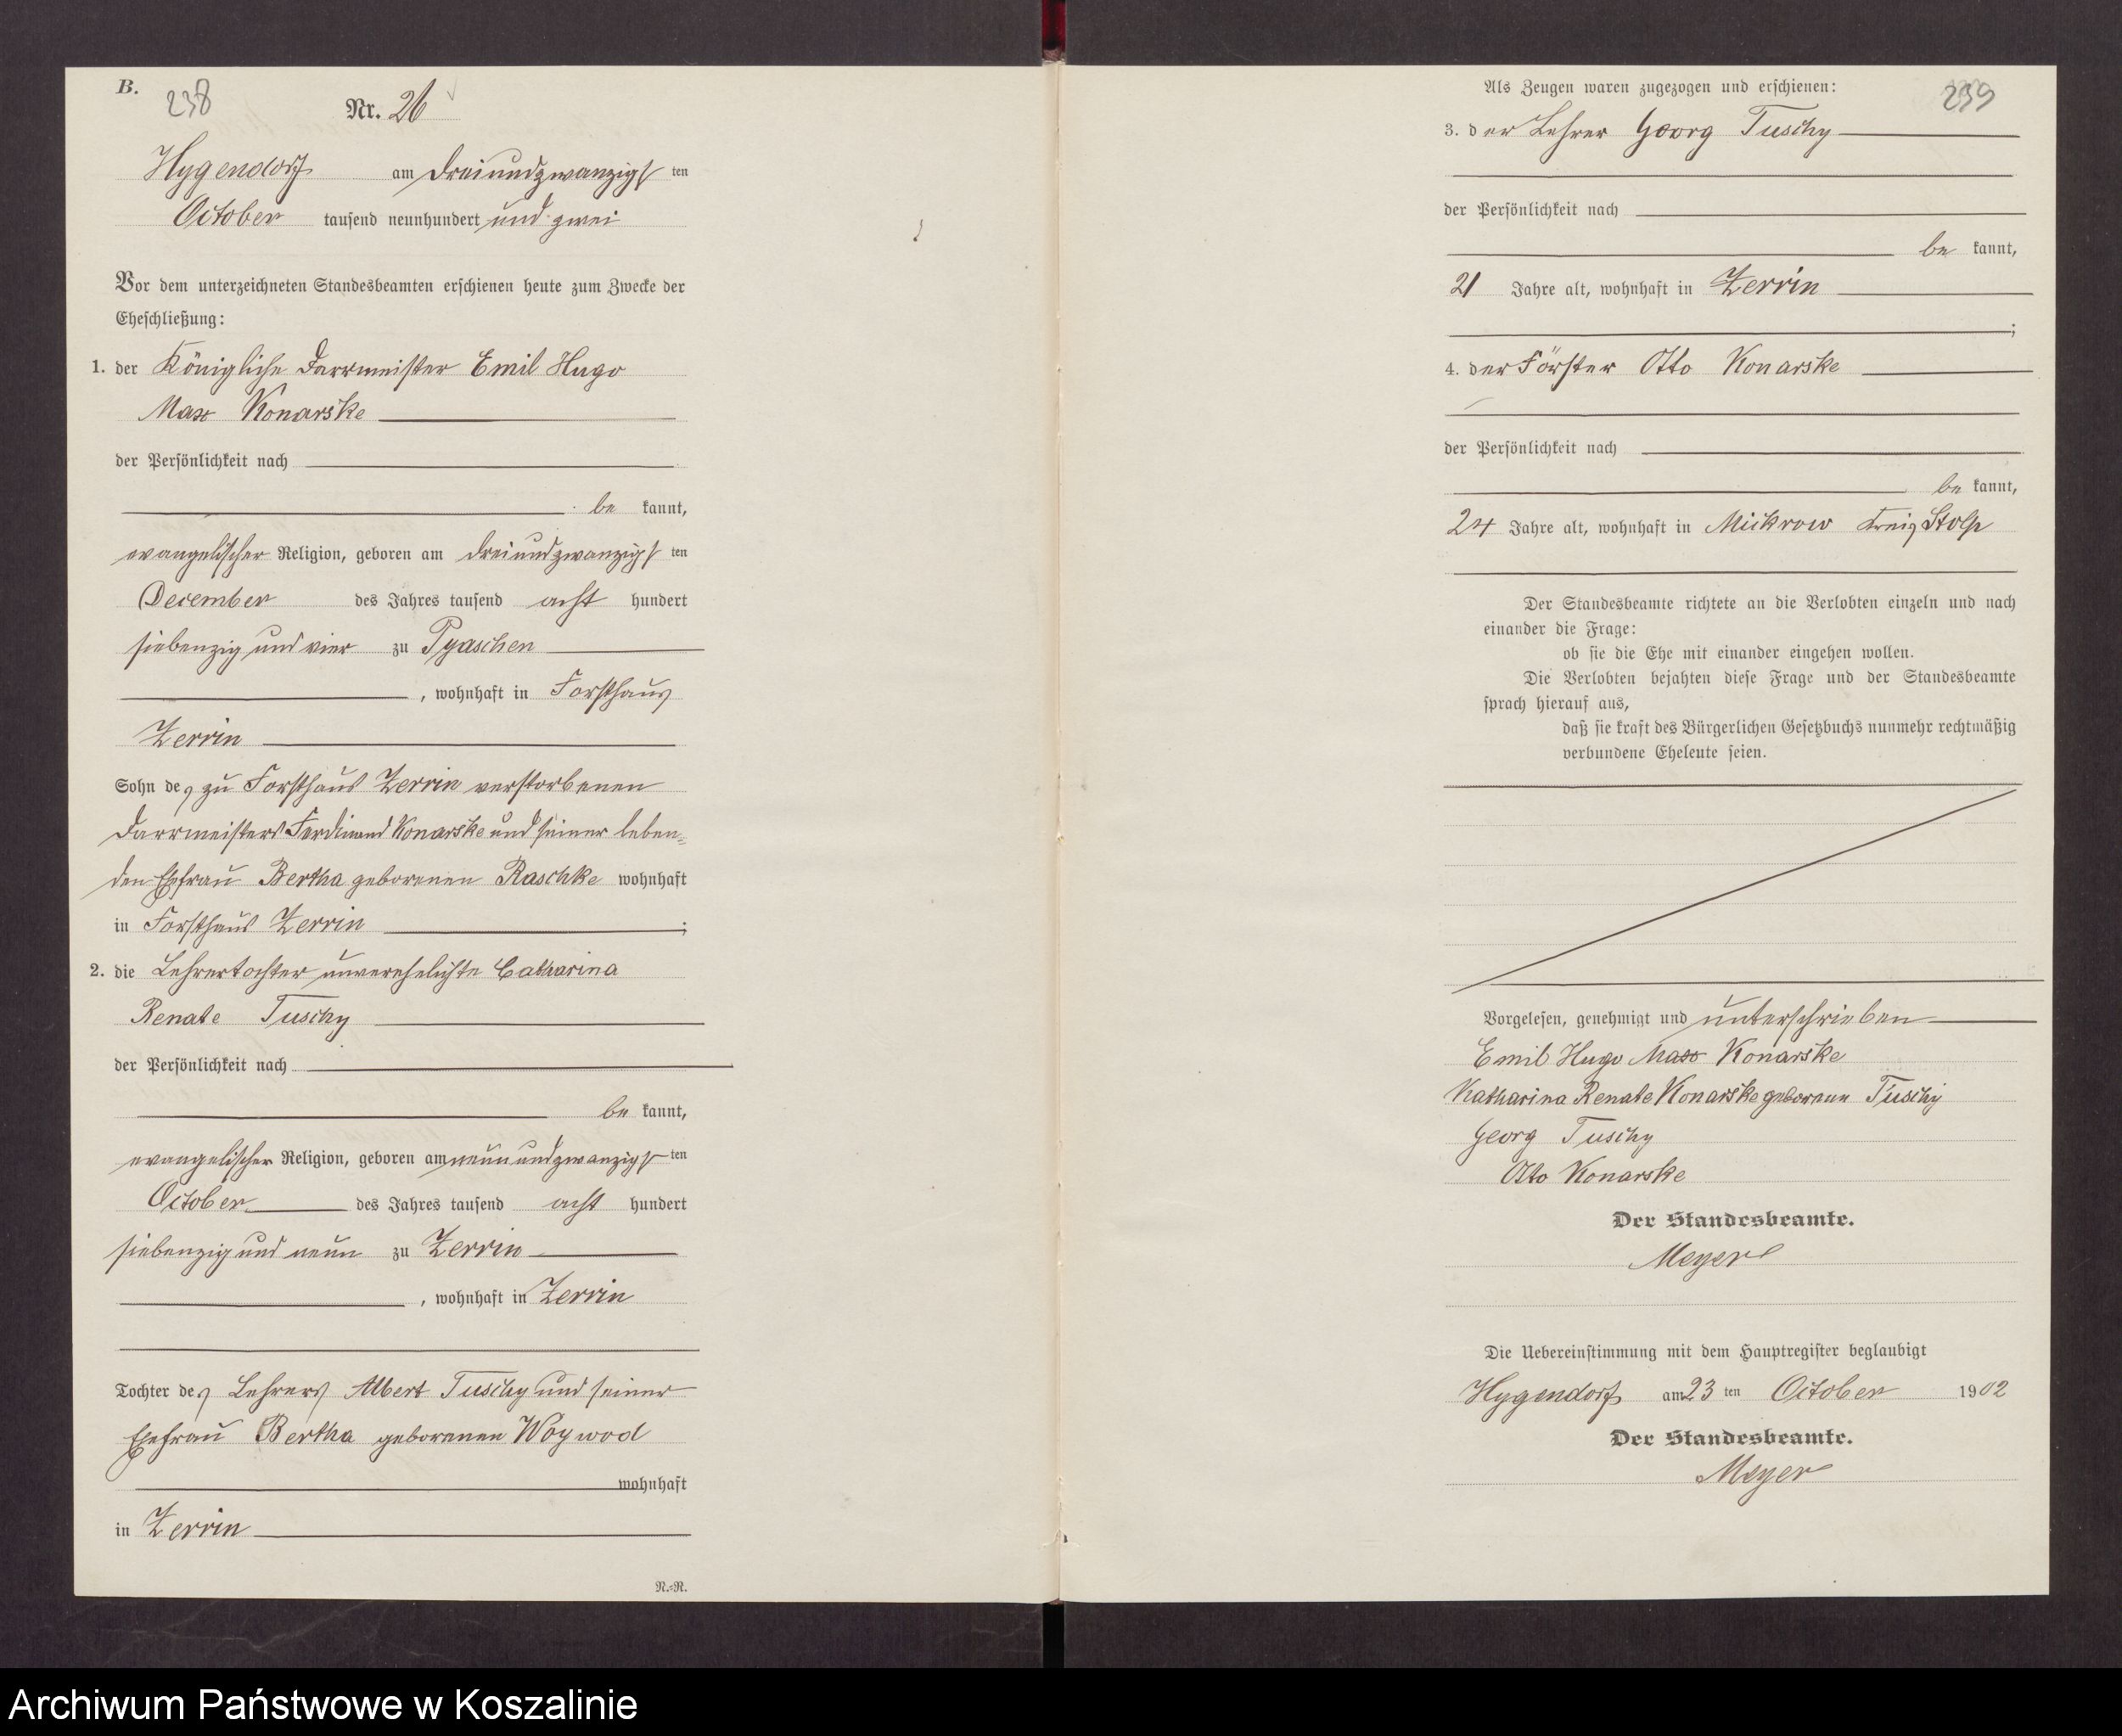 B.
238
Nr. 26
Hygendorf am dreiundzwanzigsten
October tausend neunhundert und zwei
Vor dem unterzeichneten Standesbeamten erschienen heute zum Zwecke der
Eheschließung:
1. der Königliche Darrmeister Emil Hugo
Max Konarske
der Persönlichkeit nach
be kannt,
evangelischer Religion, geboren am dreiundzwanzigsten
December des Jahres tausend acht hundert
siebenzig und vier zu Pyaschen
, wohnhaft in Forsthaus
Zerrin
Sohn des zu Forsthaus Zerrin verstorbenen
Darrmeisters Ferdinand Konarske und seiner leben-
den Ehefrau Bertha geborenen Raschke wohnhaft
in Forsthaus Zerrin ;
2. die Lehrertochter unverehelichte Catharina
Renate Tuschy
der Persönlichkeit nach
be kannt,
evangelischer Religion, geboren am neunundzwanzigsten
October des Jahres tausend acht hundert
siebenzig und neun zu Zerrin
, wohnhaft in Zerrin
Tochter des Lehrers Albert Tuschy und seiner
Ehefrau Bertha geborenen Woywod
wohnhaft
in Zerrin
N.-N.
Als Zeugen waren zugezogen und erschienen:
239
3. der Lehrer Georg Tuschy
der Persönlichkeit nach
be kannt,
21 Jahre alt, wohnhaft in Zerrin
;
4. der Förster Otto Konarske
der Persönlichkeit nach
be kannt,
24 Jahre alt, wohnhaft in Mickrow Kreis Stolp
Der Standesbeamte richtete an die Verlobten einzeln und nach
einander die Frage:
ob sie die Ehe mit einander eingehen wollen.
Die Verlobten bejahten diese Frage und der Standesbeamte
sprach hierauf aus,
daß sie kraft des Bürgerlichen Gesetzbuchs nunmehr rechtmäßig
verbundene Eheleute seien.
Vorgelesen, genehmigt und unterschrieben
Emil Hugo Max Konarske
Katharina Renate Konarske geborene Tuschy
Georg Tuschy
Otto Konarske
Der Standesbeamte.
Meyer
Die Uebereinstimmung mit dem Hauptregister beglaubigt
Hygendorf am 23 ten October 1902
Der Standesbeamte.
Meyer
Archiwum Państwowe w Koszalinie